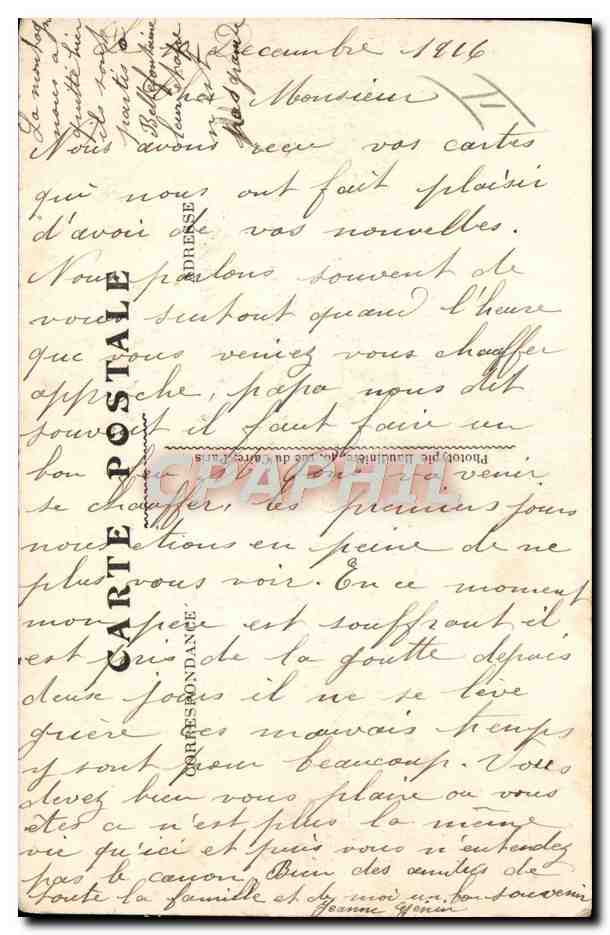 La montagne
nous a
quitté hier
ils sont
partis à
Bellefontaine
leur étape
n'est
pas grande
Décembre 1916
Monsieur
Nous avons reçu vos cartes
qui nous ont fait plaisir
d'avoir de vos nouvelles.
Nous parlons souvent de
vous surtout quand l'heure
que vous veniez vous chauffer
approche, papa nous dit
souvent il faut faire un
bon feu va venir
se chauffer, les premiers jours
nous étions en peine de ne
plus vous voir. En ce moment
mon père est souffrant il
est pris de la goutte depuis
deux jours il ne se lève
guère ces mauvais temps
y sont pour beaucoup. Vous
devez bien vous plaire où vous
êtes ce n'est plus la même
vie qu'ici et puis vous n'entendez
pas le canon. Bien des amitiés de
toute la famille et de moi un bon souvenir
Jeanne
CARTE POSTALE
CORRESPONDANCE
ADRESSE
Phototypie Baudinière, rue du Caire, Paris
CPAPHIL